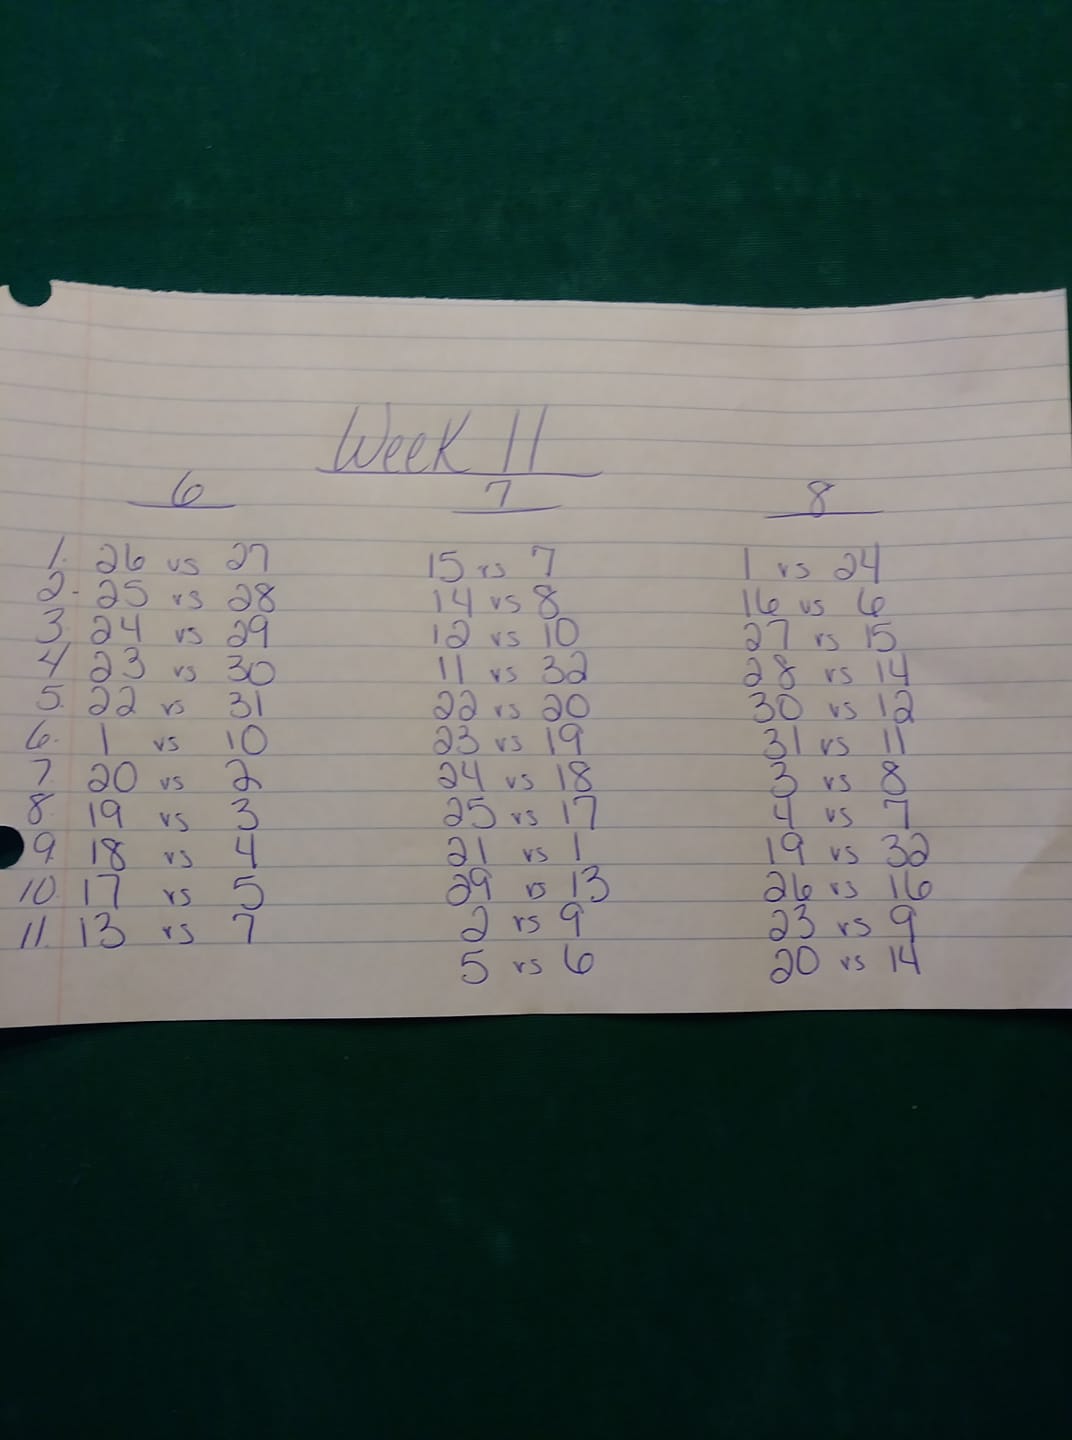 Week 11
6 7 8
1. 26 vs 27 15 vs 7 1 vs 24
2. 25 vs 28 14 vs 8 16 vs 6
3. 24 vs 29 12 vs 10 27 vs 15
4. 23 vs 30 11 vs 32 28 vs 14
5. 22 vs 31 22 vs 20 30 vs 12
6. 1 vs 10 23 vs 19 31 vs 11
7. 20 vs 2 24 vs 18 3 vs 8
8. 19 vs 3 25 vs 17 4 vs 7
9. 18 vs 4 21 vs 1 19 vs 32
10. 17 vs 5 29 vs 13 26 vs 16
11. 13 vs 7 2 vs 9 23 vs 9
5 vs 6 20 vs 14